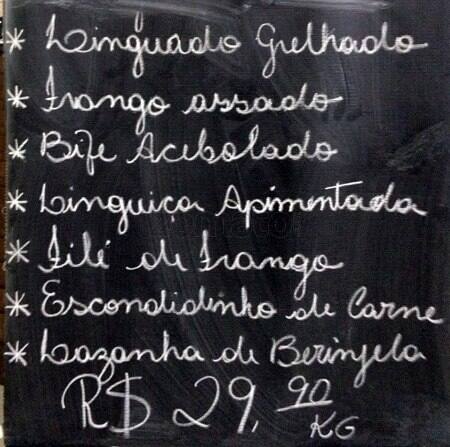 * Linguado Grelhado
* Frango assado
* Bife Acebolado
* Linguiça Apimentada
* Filé de Frango
* Escondidinho de Carne
* Lazanha de Berinjela
R$ 29,90 KG